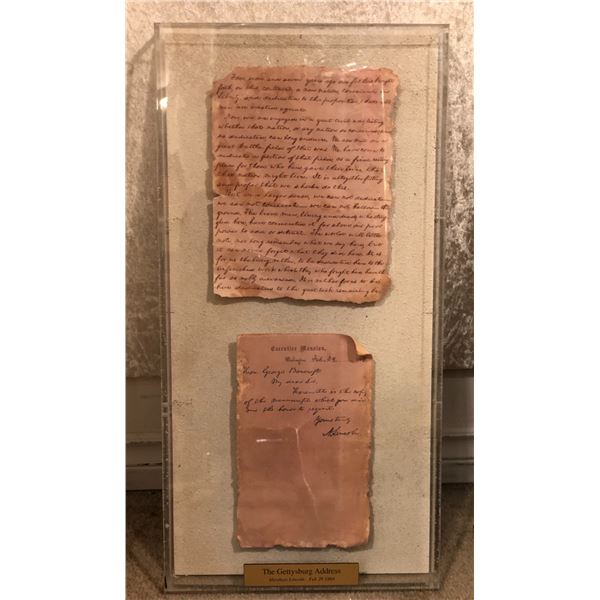 Four score and seven years ago our fathers brought
forth on this continent a new nation, conceived in
liberty, and dedicated to the proposition that all
men are created equal.
Now we are engaged in a great civil war, testing
whether that nation, or any nation so conceived and
so dedicated can long endure. We are met on a
great battle field of that war. We have come to
dedicate a portion of that field, as a final resting
place for those who here gave their lives that
that nation might live. It is altogether fitting
and proper that we should do this.
But in a larger sense, we can not dedicate
we can not consecrate we can not hallow this
ground. The brave men, living and dead, who struggled
here have consecrated it far above our poor
power to add or detract. The world will little
note nor long remember what we say here, but
it can never forget what they did here. It is
for us the living rather, to be dedicated here to the
unfinished work which they who fought here have thus
far so nobly advanced. It is rather for us to be
here dedicated to the great task remaining be
Executive Mansion,
Washington, Feb. 29
Hon. George Bancroft
My dear Sir
Herewith is the copy
of the manuscript which you did
me the honor to request.
Yours truly
A. Lincoln
The Gettysburg Address
Abraham Lincoln Feb 29 1864